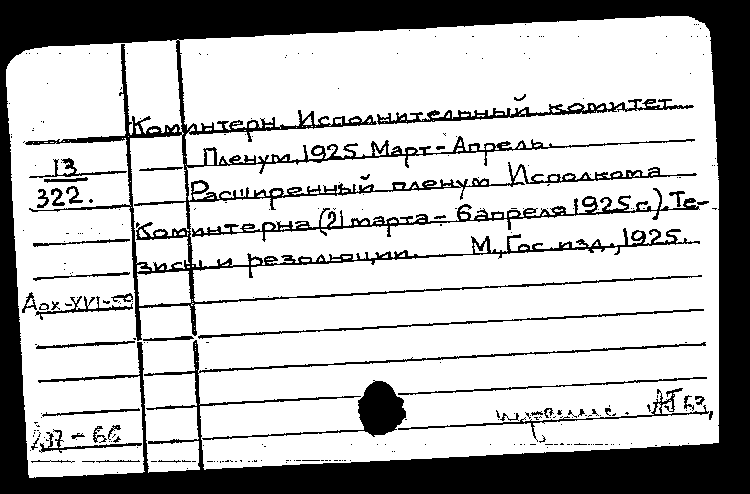 Коминтерн. Исполнительный комитет
Пленум, 1925. Март-Апрель.
13
322.
Расширенный пленум Исполкома
Коминтерна (21 марта - 6 апреля 1925 г.). Те-
зисы и резолюции. М., Гос. изд., 1925.
Арх-XVI-59
237-66
АТ 63,